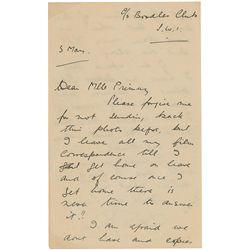 c/o Boodles Club
S.W.1.
5 Mar.
Dear Mlle Primary
Please forgive me
for not sending back
this photo before, but
I leave all my film
correspondence till I
get home on leave
and of course once I
get home there is
never time to answer
it!!
I am afraid we
dont have and copies